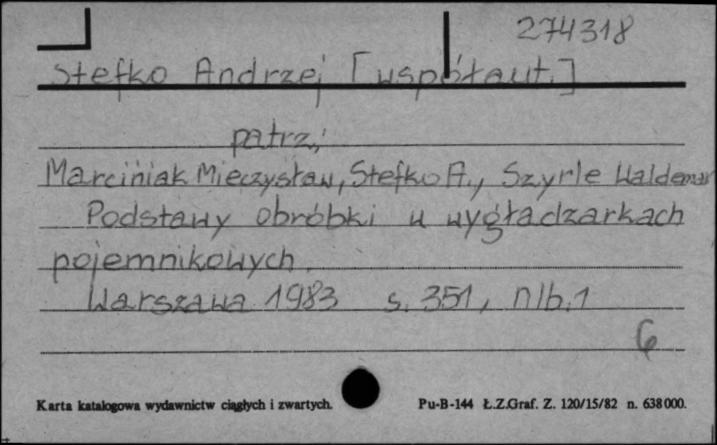 274318
Stefko Andrzej [współaut.]
patrz;
Marciniak Mieczysław, Stefko A., Szyrle Waldemar
Podstawy obróbki w wygładzarkach
pojemnikowych.
Warszawa 1983 s. 351, nlb. 1
6
Karta katalogowa wydawnictw ciągłych i zwartych.
Pu-B-144 Ł.Z.Graf. Z. 120/15/82 n. 638000.